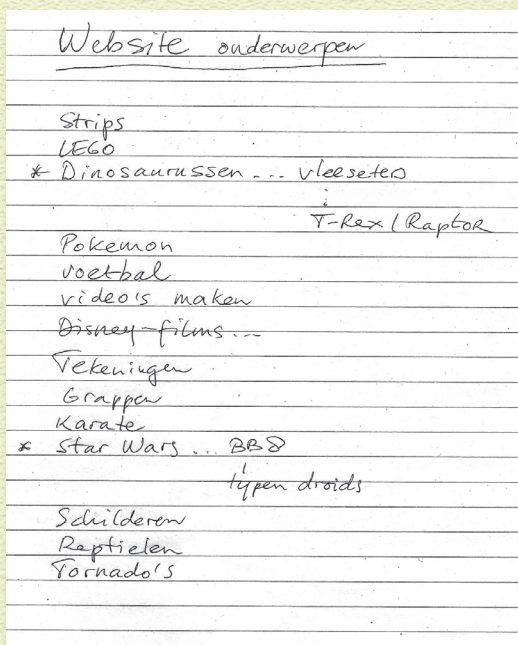 Website onderwerpen
Strips
LEGO
* Dinosaurussen ... vleeseters
T-Rex / Raptor
Pokemon
voetbal
video's maken
Disney-films ...
Tekeningen
Grappen
Karate
* Star Wars ... BB8
typen droids
Schilderen
Reptielen
Tornado's